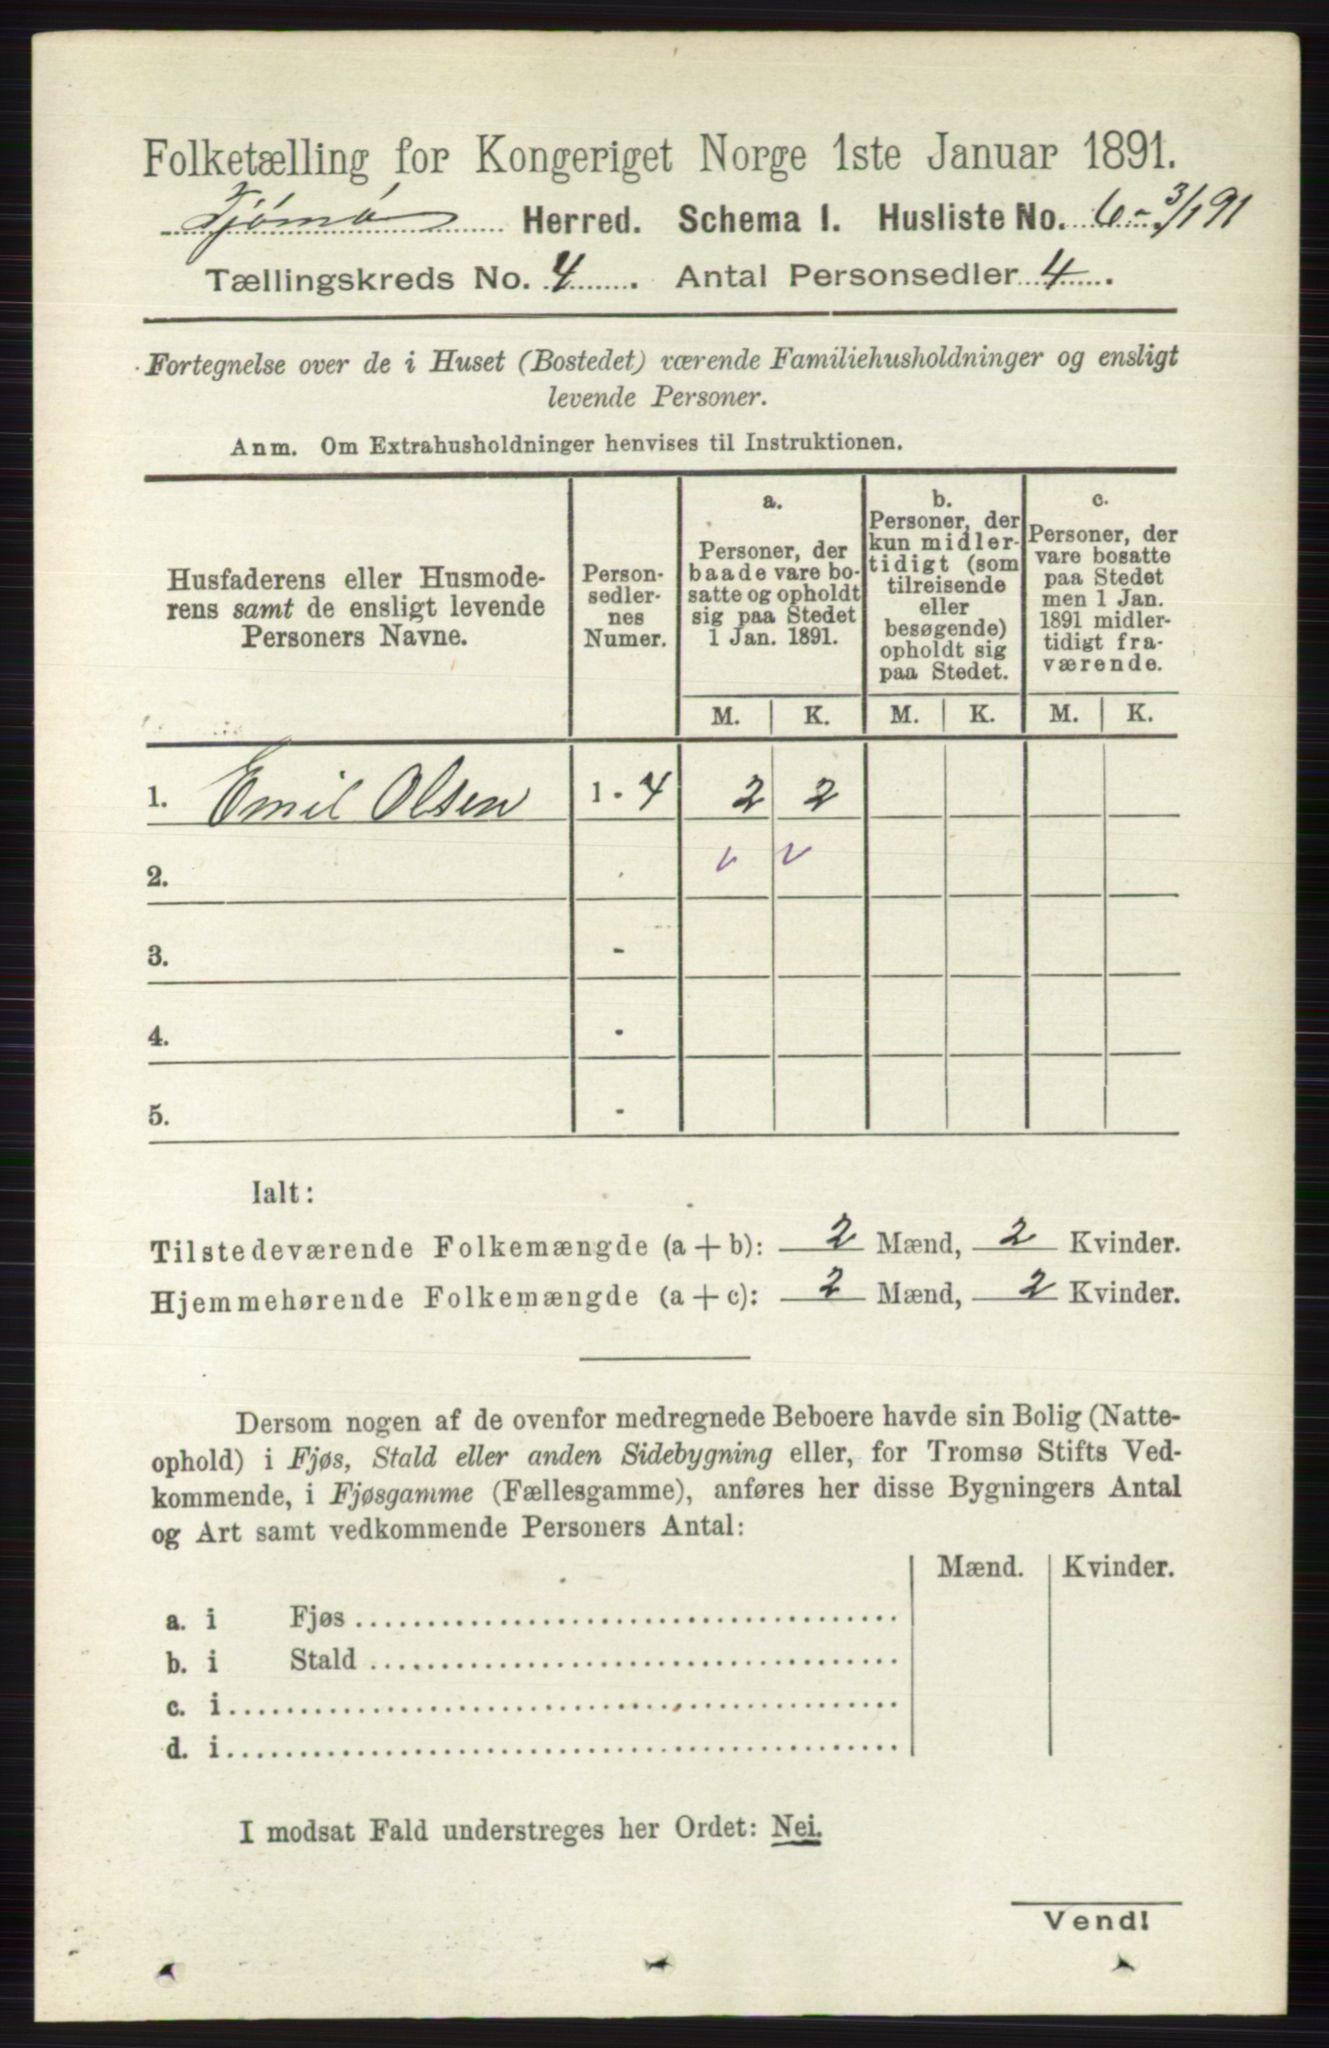 Folketælling for Kongeriget Norge 1ste Januar 1891.
Tjømø Herred. Schema I. Husliste No. 6 - 3/1 91
Tællingskreds No. 4. Antal Personsedler 4.
Fortegnelse over de i Huset (Bostedet) værende Familiehusholdninger og ensligt
levende Personer.
Anm. Om Extrahusholdninger henvises til Instruktionen.
Husfaderens eller Husmode-
rens samt de ensligt levende
Personers Navne.
Person-
sedler-
nes
Numer.
a.
Personer, der
baade vare bo-
satte og opholdt
sig paa Stedet
1 Jan. 1891.
b.
Personer, der
kun midler-
tidigt (som
tilreisende
eller
besøgende)
opholdt sig
paa Stedet.
c.
Personer, der
vare bosatte
paa Stedet
men 1 Jan.
1891 midler-
tidigt fra-
værende.
M. K. M. K. M. K.
1. Emil Olsen 1 - 4 2 2
2.
3. -
4. -
5. -
Ialt:
Tilstedeværende Folkemængde (a + b): 2 Mænd, 2 Kvinder.
Hjemmehørende Folkemængde (a + c): 2 Mænd, 2 Kvinder.
Dersom nogen af de ovenfor medregnede Beboere havde sin Bolig (Natte-
ophold) i Fjøs, Stald eller anden Sidebygning eller, for Tromsø Stifts Ved-
kommende, i Fjøsgamme (Fællesgamme), anføres her disse Bygningers Antal
og Art samt vedkommende Personers Antal:
Mænd. Kvinder.
a. i Fjøs
b. i Stald
c. i
d. i
I modsat Fald understreges her Ordet: Nei.
Vend!